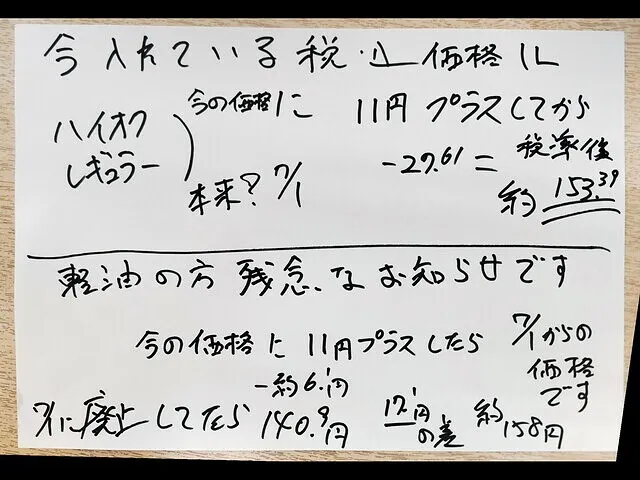 今入れている税込価格に
ハイオク
レギュラー
今の価格に 11円プラスしてから
-27.61=
本来? 7/1
税率後
約153.39
軽油の方 残念なお知らせです
今の価格に 11円プラスしたら
7/1からの
価格
です
-約6.1円
7/1に廃止してたら 140.9円
17.1円
の差
約158円